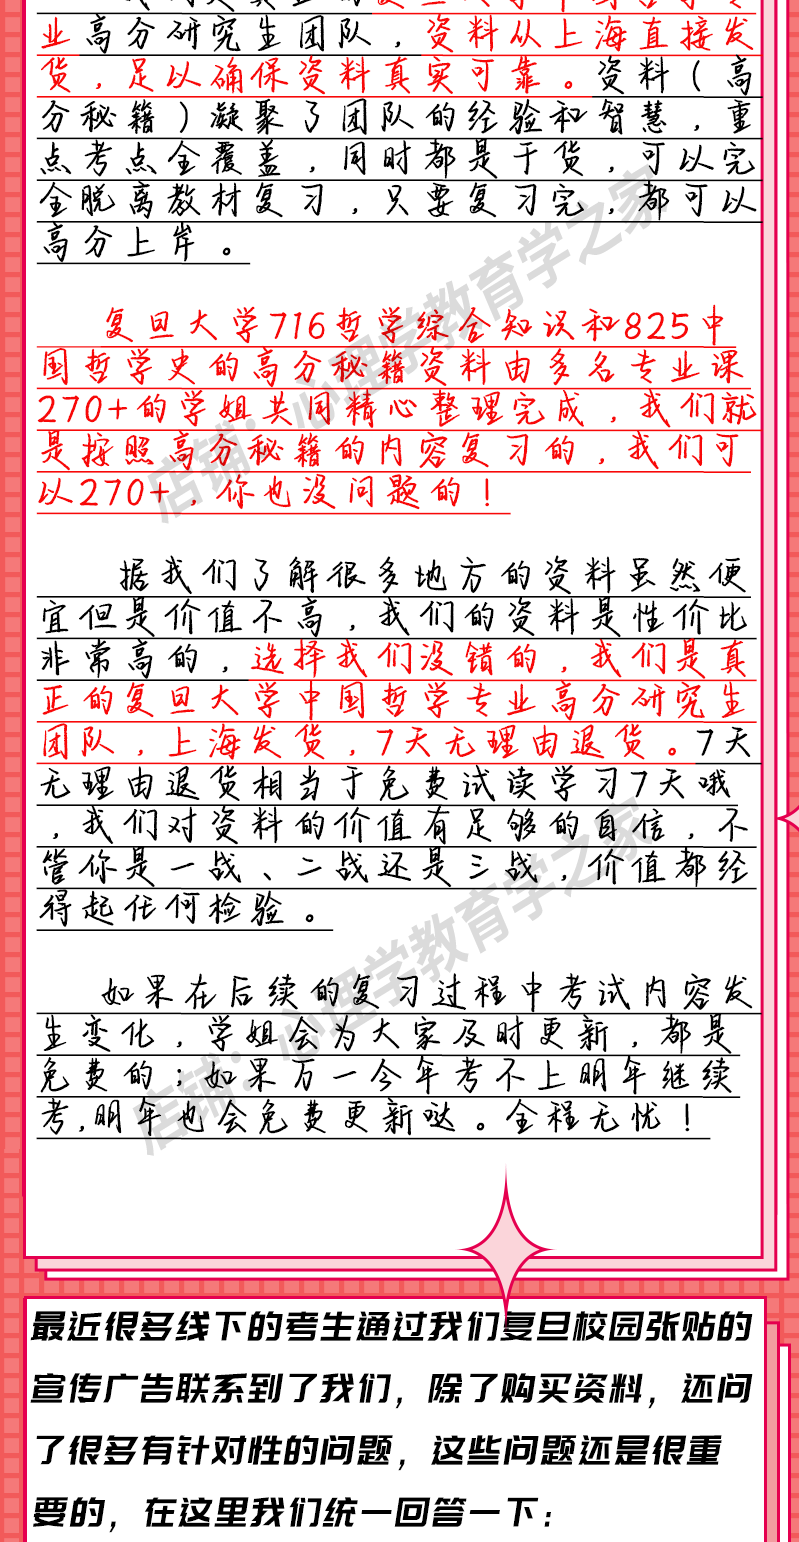 业高分研究生团队，资料从上海直接发
货，足以确保资料真实可靠。资料（高
分秘籍）凝聚了团队的经验和智慧，重
点考点全覆盖，同时都是干货，可以完
全脱离教材复习，只要复习完，都可以
高分上岸。
复旦大学716哲学综合知识和825中
国哲学史的高分秘籍资料由多名专业课
270+的学姐共同精心整理完成，我们就
是按照高分秘籍的内容复习的，我们可
以270+，你也没问题的！
据我们了解很多地方的资料虽然便
宜但是价值不高，我们的资料是性价比
非常高的，选择我们没错的，我们是真
正的复旦大学中国哲学专业高分研究生
团队，上海发货，7天无理由退货。7天
无理由退货相当于免费试读学习7天哦
，我们对资料的价值有足够的自信，不
管你是一战、二战还是三战，价值都经
得起任何检验。
如果在后续的复习过程中考试内容发
生变化，学姐会为大家及时更新，都是
免费的；如果万一今年考不上明年继续
考,明年也会免费更新哒。全程无忧！
店铺：心理学教育学之家
店铺：心理学教育学之家
最近很多线下的考生通过我们复旦校园张贴的
宣传广告联系到了我们，除了购买资料，还问
了很多有针对性的问题，这些问题还是很重
要的，在这里我们统一回答一下：